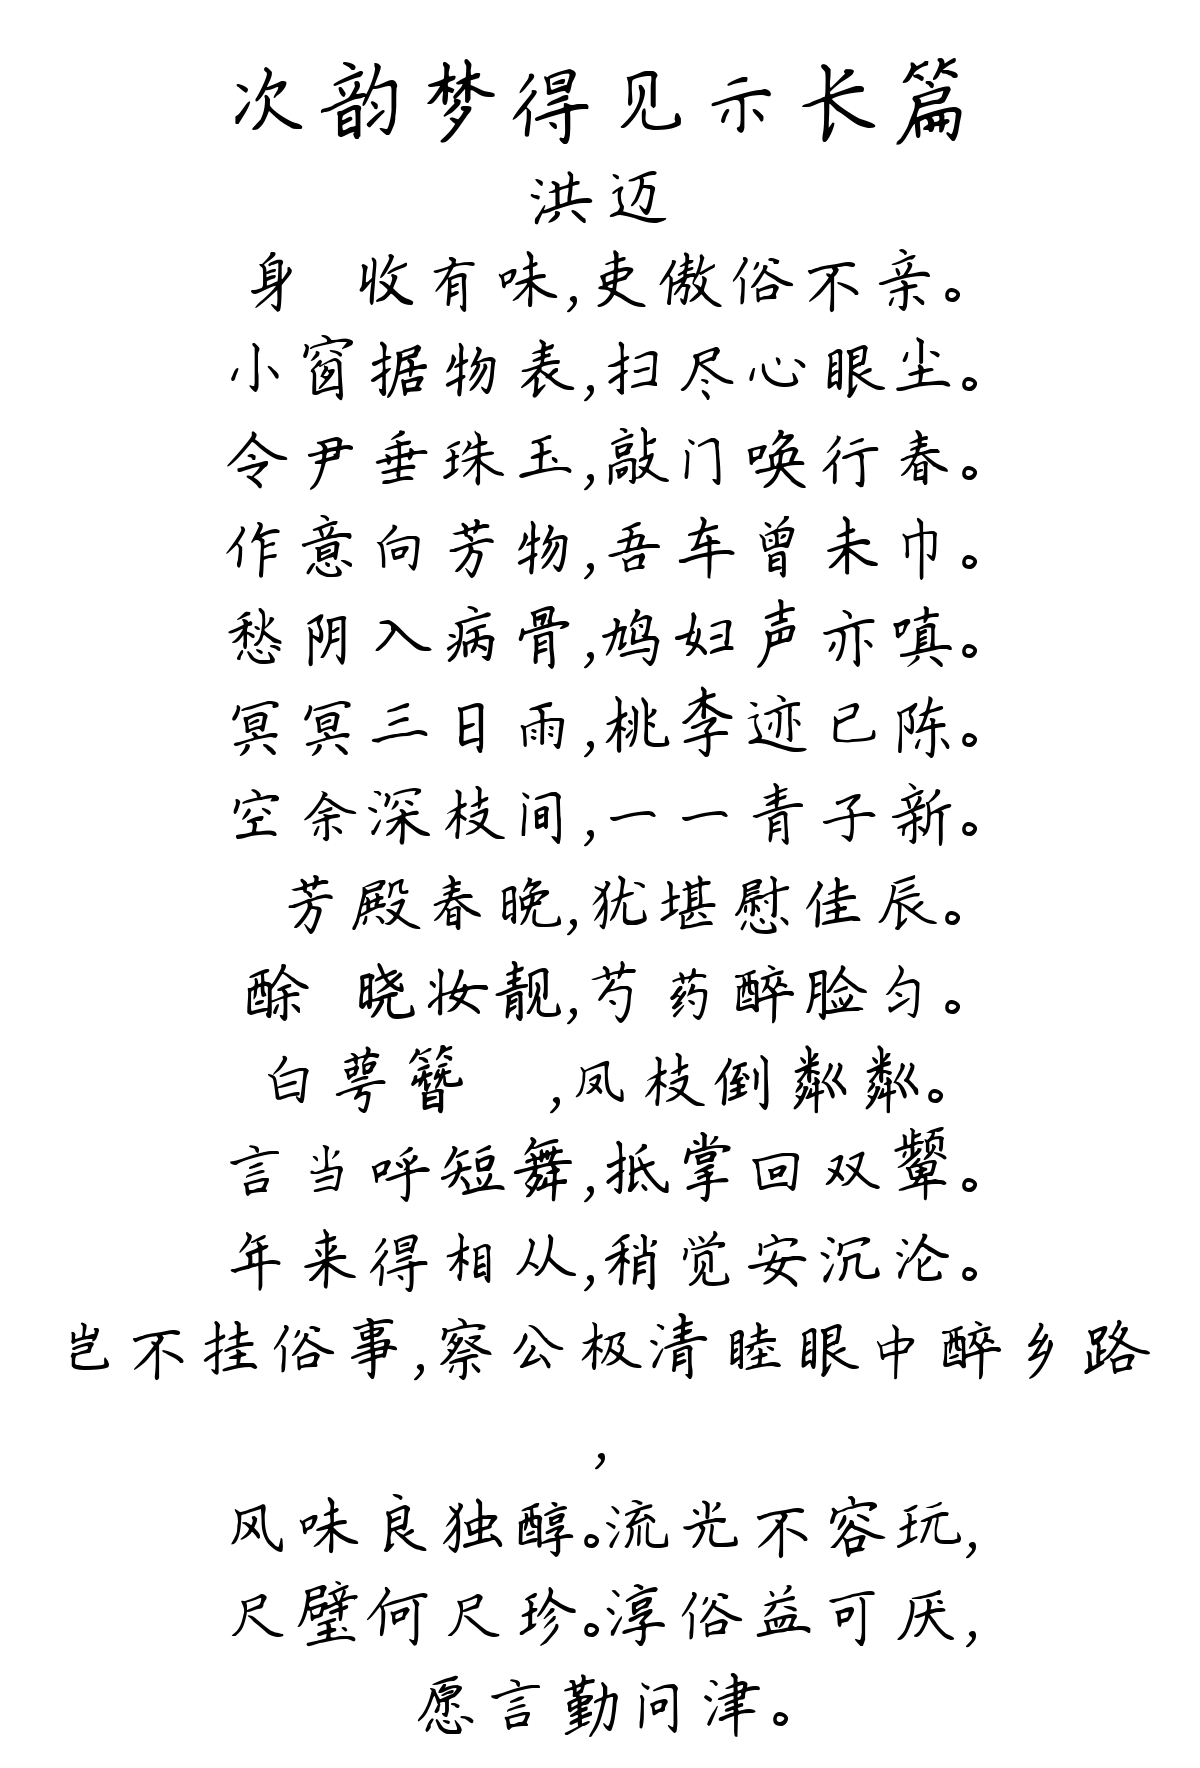 次韵梦得见示长篇
洪迈
身 收有味,吏傲俗不亲。
小窗据物表,扫尽心眼尘。
令尹垂珠玉,敲门唤行春。
作意向芳物,吾车曾未巾。
愁阴入病骨,鸠妇声亦嗔。
冥冥三日雨,桃李迹已陈。
空余深枝间,一一青子新。
芳殿春晚,犹堪慰佳辰。
酴 晓妆靓,芍药醉脸匀。
白萼簪 ,凤枝倒粼粼。
言当呼短舞,抵掌回双颦。
年来得相从,稍觉安沉沦。
岂不挂俗事,察公极清睦眼中醉乡路
,
风味良独醇。流光不容玩,
尺璧何尺珍。淳俗益可厌,
愿言勤问津。